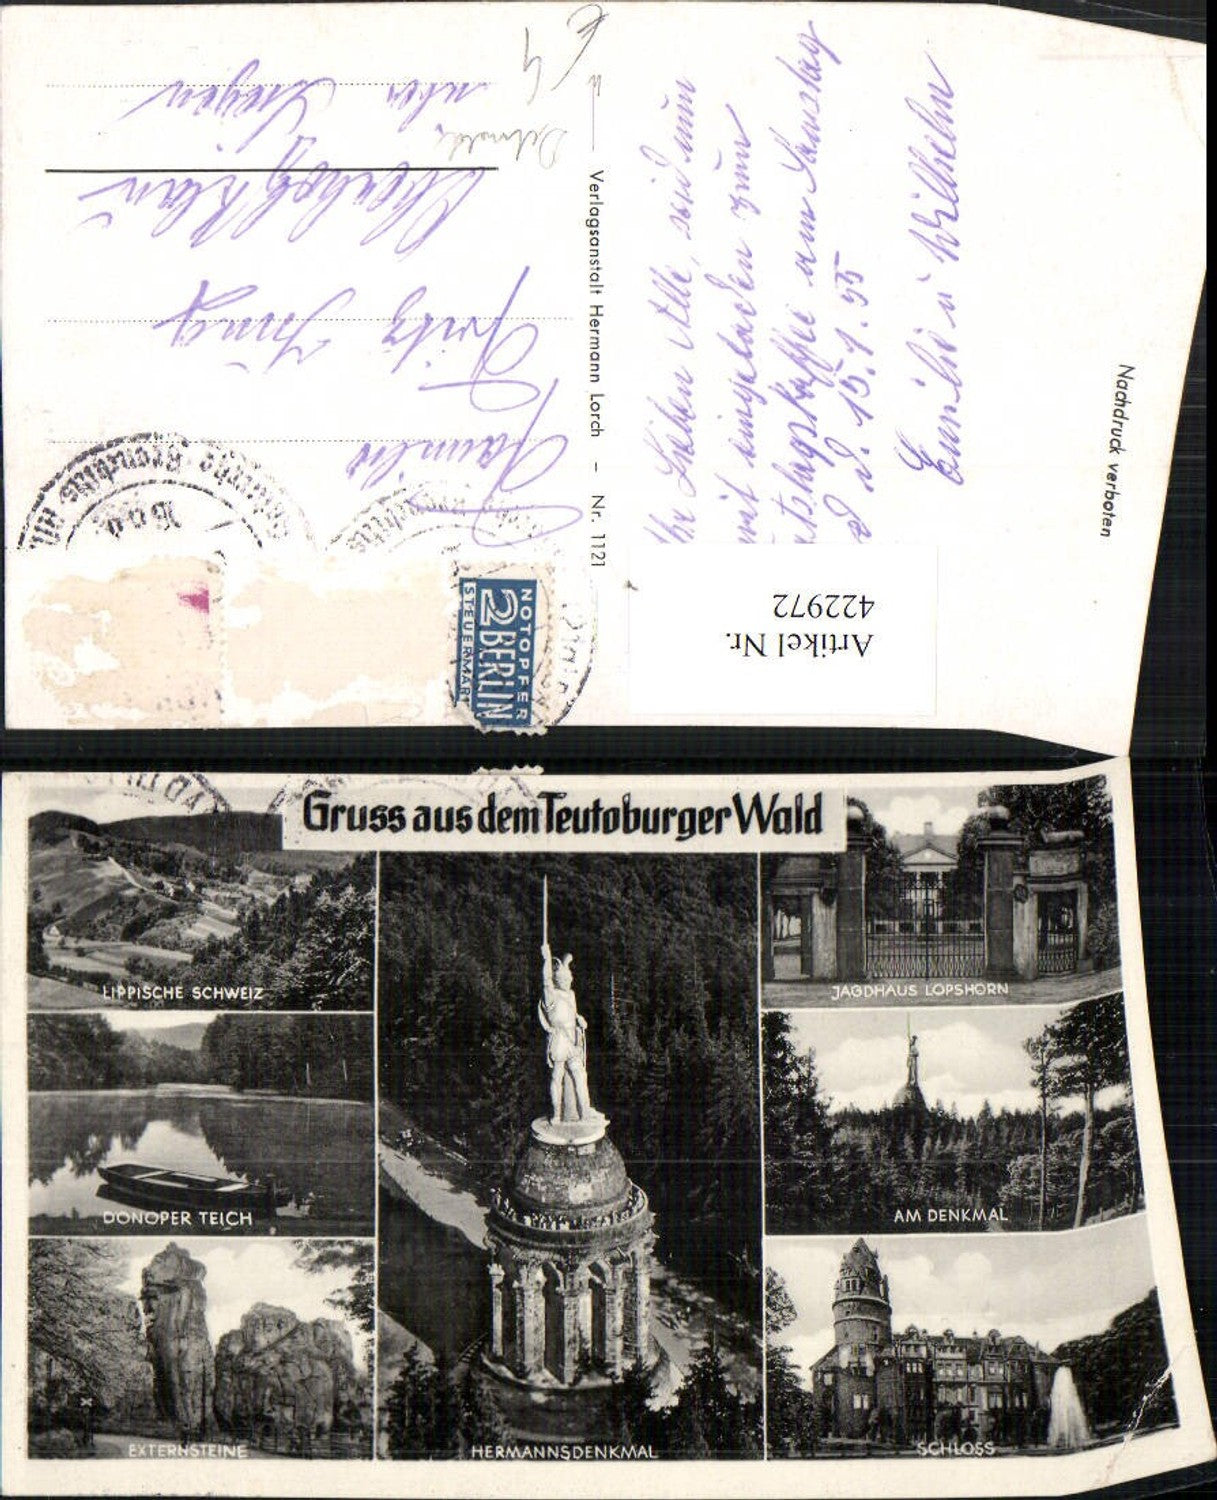 Ihr Lieben Alle, sind nun
mit eingeladen zum
am Samstag
d. 15.1.55
Emilie u Wilhelm
Nachdruck verboten
Verlagsanstalt Hermann Lorch – Nr. 1121
Familie
Fritz Jung
über Siegen
Detmold
NOTOPFER
2 BERLIN
STEUERMARKE
Artikel Nr.
422972
Gruss aus dem Teutoburger Wald
LIPPISCHE SCHWEIZ
JAGDHAUS LOPSHORN
DONOPER TEICH
AM DENKMAL
EXTERNSTEINE
HERMANNSDENKMAL
SCHLOSS